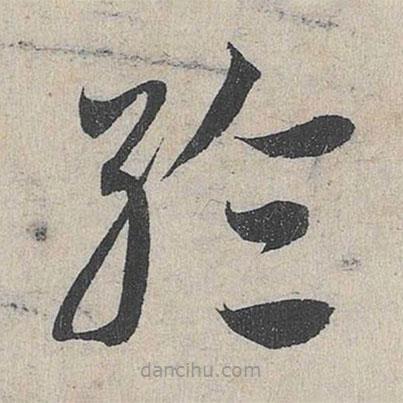 於
dancihu.com